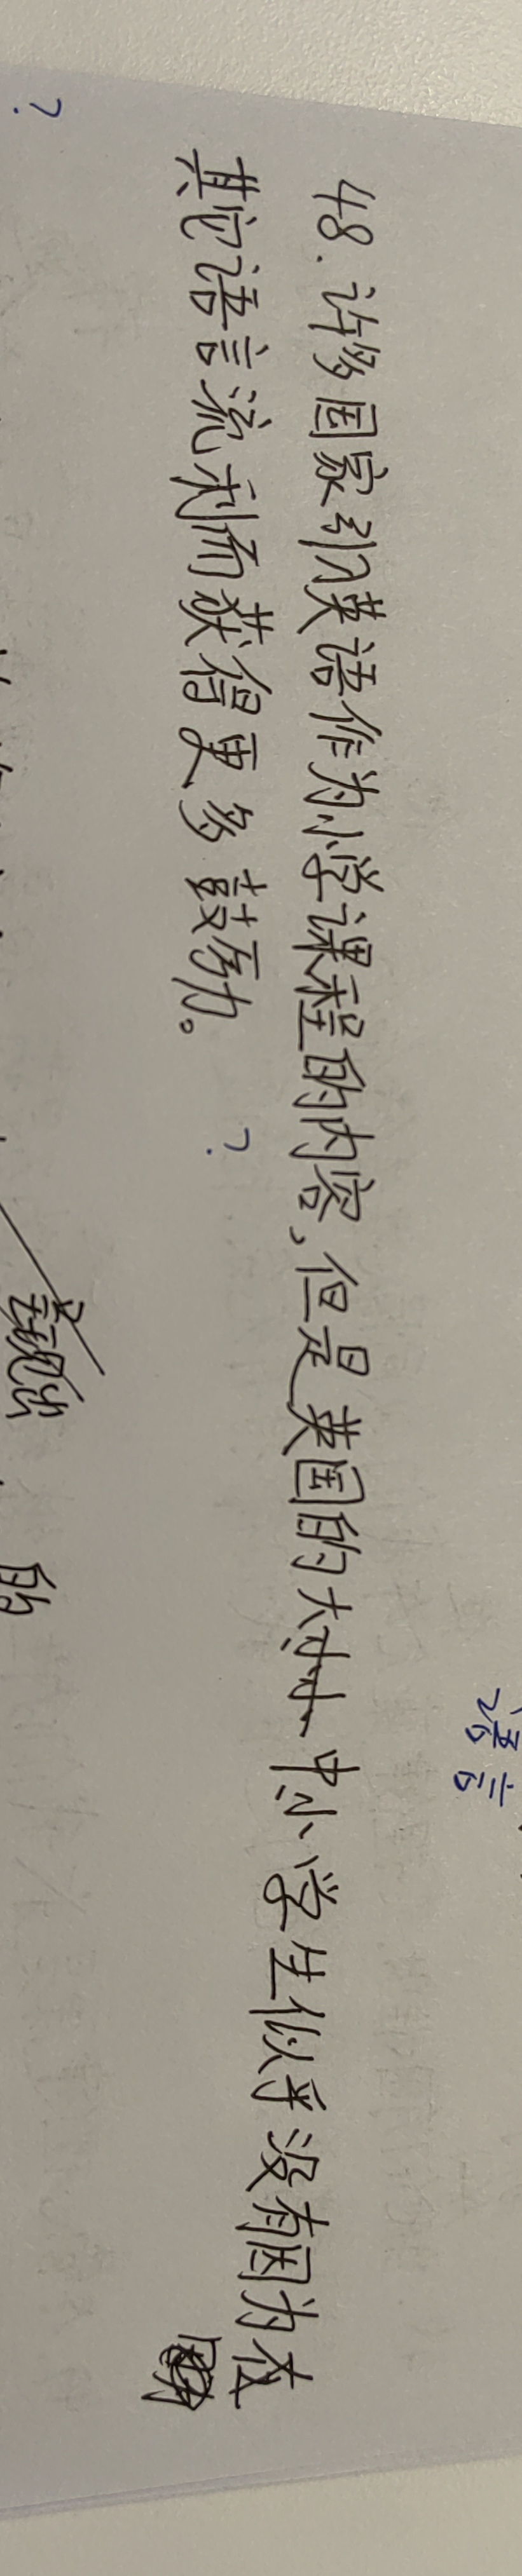 语言
48. 许多国家引入英语作为小学课程的内容,但是英国的大中小学生似乎没有因为在
其它语言流利而获得更多鼓励。 ?
?
的